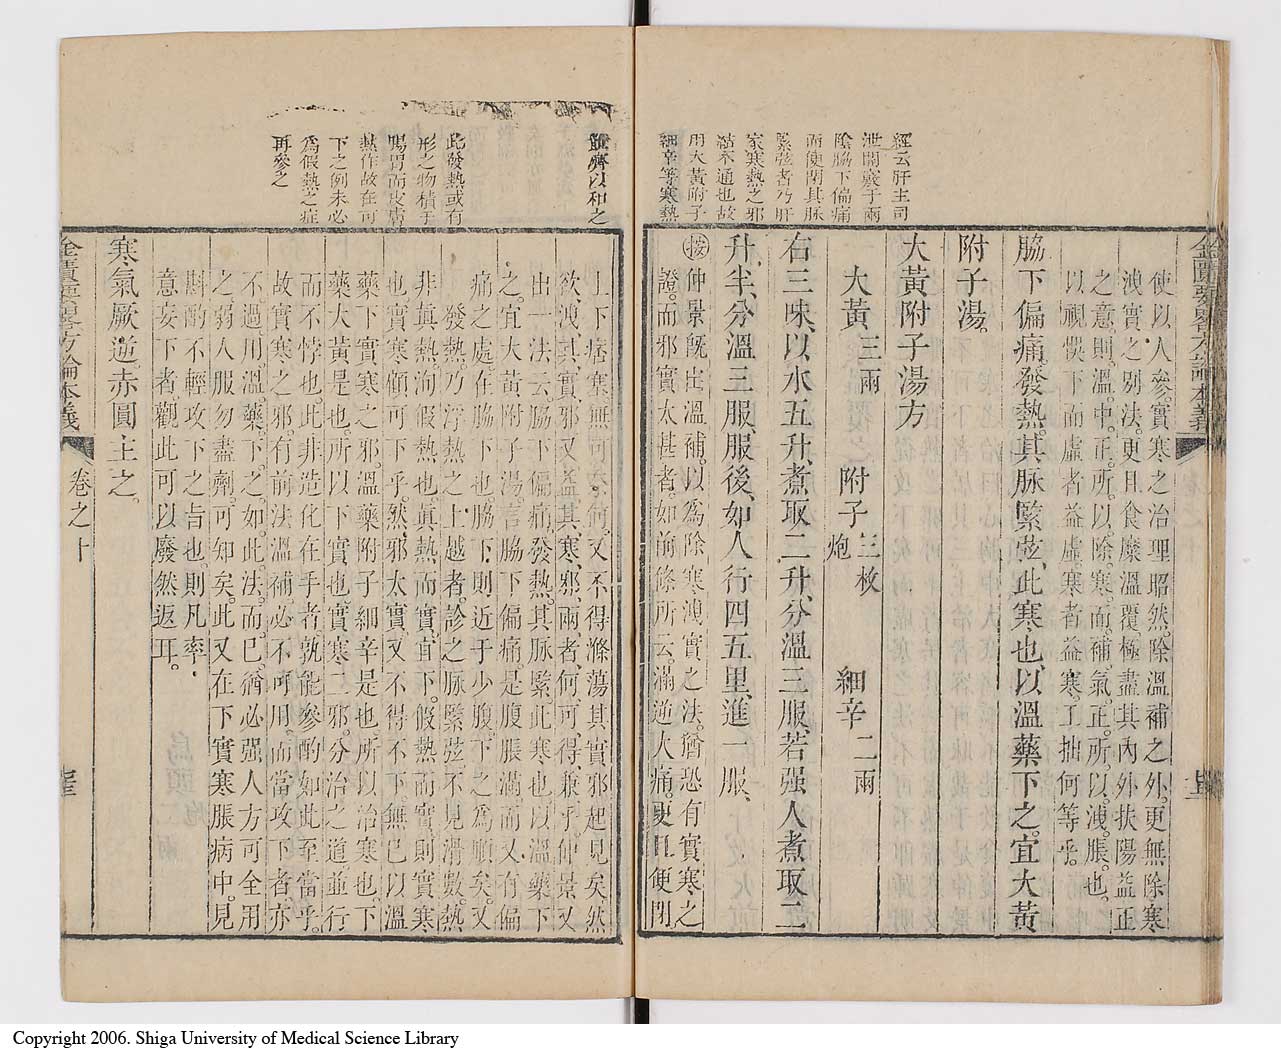 經云肝主司
泄開竅于兩
陰脇下偏痛
而使閉其脉
緊弦者乃肝
家寒熱之邪
結不通也故
用大黃附子
細辛等寒熱
金匱要畧方論本義
使以人參實寒之治理昭然除溫補之外更無除寒
洩實之別法更且食糜溫覆極盡其內外扶陽益正
之意則溫中正所以除寒而補氣正所以洩脹也
以視悞下而虛者益虛寒者益寒工拙何等乎
脇下偏痛發熱其脉緊弦此寒也以溫藥下之宜大黃
附子湯
大黃附子湯方
大黃三兩 附子三枚炮 細辛二兩
右三味以水五升煮取二升分溫三服若强人煮取二
升半分溫三服服後如人行四五里進一服
按仲景旣出溫補以爲除寒洩實之法猶恐有實寒之
證而邪實太甚者如前條所云滿逆大痛更且便閉
雜齊以和之
此發熱或有
形之物積于
腸胃而皮膚
熱作故在可
下之例未必
爲假熱之症
再參之
上下痞塞無可奈何又不得滌蕩其實邪起見矣然
欲洩其實邪又益其寒邪兩者何可得兼乎仲景又
出一法云脇下偏痛發熱其脉緊此寒也以溫藥下
之宜大黃附子湯言脇下偏痛是腹脹滿而又有偏
痛之處在脇下也脇下則近于少腹下之爲順矣又
發熱乃浮熱之上越者診之脉緊弦不見滑數熱
非眞熱洵假熱也眞熱而實宜下假熱而實則實寒
也實寒顧可下乎然邪太實又不得不下無已以溫
藥下實寒之邪溫藥附子細辛是也所以治寒也下
藥大黃是也所以下實也實寒二邪分治之道並行
而不悖也此非造化在手者孰能參酌如此至當乎
故實寒之邪有前法溫補必不可用而當攻下者亦
不過用溫藥下之如此法而已猶必强人方可全用
之弱人服勿盡劑可知矣此又在下實寒脹病中見
斟酌不輕攻下之旨也則凡率
意妄下者觀此可以廢然返耳
寒氣厥逆赤圓主之
金匱要畧方論本義 卷之十